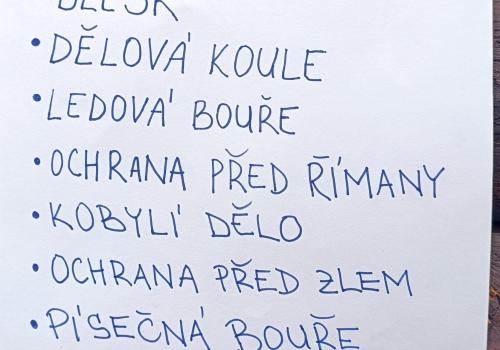 BLESK
• DĚLOVÁ KOULE
• LEDOVÁ BOUŘE
• OCHRANA PŘED ŘÍMANY
• KOBYLÍ DĚLO
• OCHRANA PŘED ZLEM
• PÍSEČNÁ BOUŘE